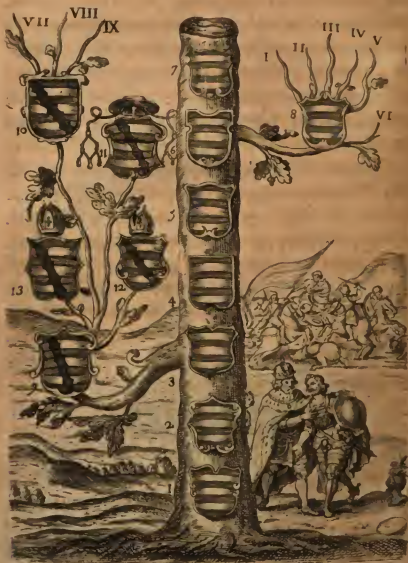 VII VIII IX
III IV V
I II
VI
7
8
10
11
6
5
13
12
4
3
2